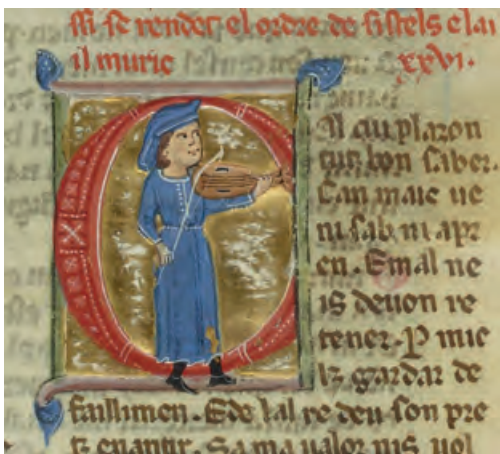 si se rendet el ordre de sistels e lai
il muric xxvi.
cui plazon
tut bon saber.
Can maie ue
ni sab ni apr
en. Emal ne
is deuon re
tener. P mie
lz gardar de
faillimen. Ede tal re deu son pre
tz enantir. Sa ma ualor nis uol